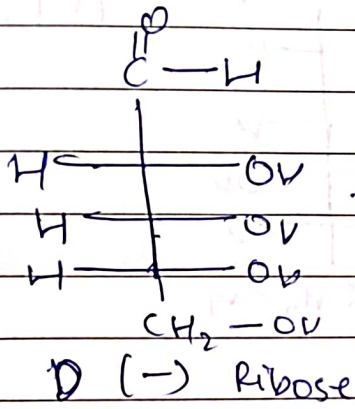 O
C — H
H OH
H OH
H OH
CH₂ — OH
D (-) Ribose